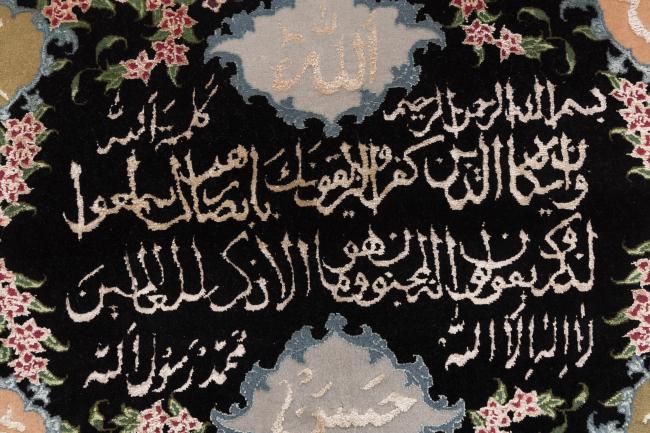 الله
بسم الله الرحمن الرحيم
كلمة الله
وان يكاد الذين كفروا ليزلقونك بابصارهم لما سمعوا
الذكر ويقولون انه لمجنون وما هو الا ذكر للعالمين
لا اله الا الله
محمد رسول الله
حسين